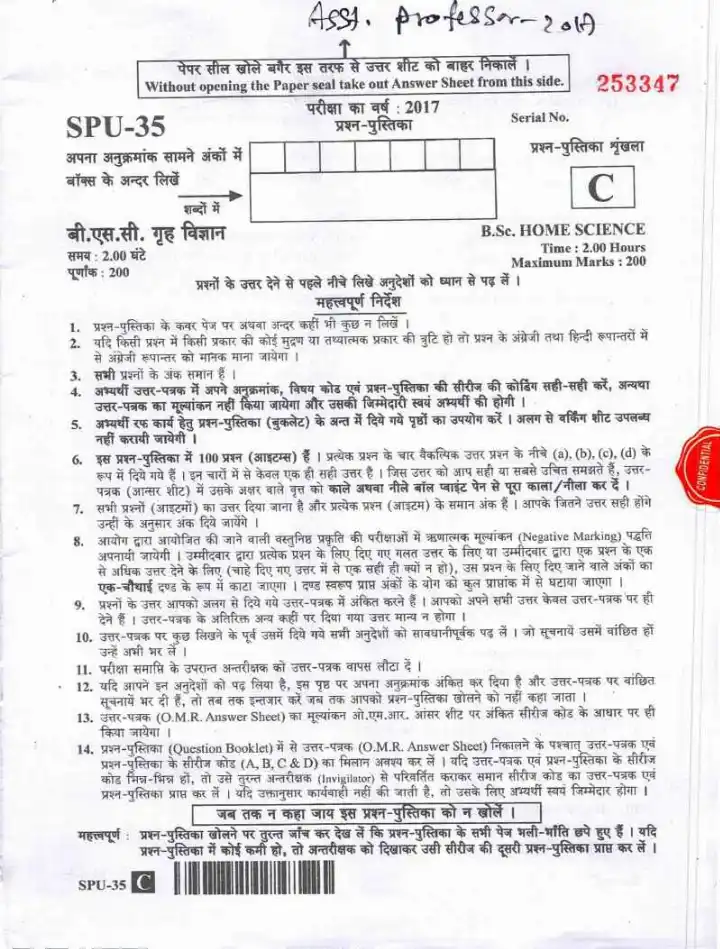 Asst. Professor - 2017
पेपर सील खोले बगैर इस तरफ से उत्तर शीट को बाहर निकालें ।
Without opening the Paper seal take out Answer Sheet from this side.
253347
परीक्षा का वर्ष : 2017
SPU-35
प्रश्न-पुस्तिका
Serial No.
अपना अनुक्रमांक सामने अंकों में
बॉक्स के अन्दर लिखें
शब्दों में
प्रश्न-पुस्तिका शृंखला
C
बी.एस.सी. गृह विज्ञान
B.Sc. HOME SCIENCE
समय : 2.00 घंटे
Time : 2.00 Hours
पूर्णांक : 200
Maximum Marks : 200
प्रश्नों के उत्तर देने से पहले नीचे लिखे अनुदेशों को ध्यान से पढ़ लें ।
महत्त्वपूर्ण निर्देश
1. प्रश्न-पुस्तिका के कवर पेज पर अथवा अन्दर कहीं भी कुछ न लिखें ।
2. यदि किसी प्रश्न में किसी प्रकार की कोई मुद्रण या तथ्यात्मक प्रकार की त्रुटि हो तो प्रश्न के अंग्रेजी तथा हिन्दी रूपान्तरों में
से अंग्रेजी रूपान्तर को मानक माना जायेगा ।
3. सभी प्रश्नों के अंक समान हैं ।
4. अभ्यर्थी उत्तर-पत्रक में अपने अनुक्रमांक, विषय कोड एवं प्रश्न-पुस्तिका की सीरीज की कोडिंग सही-सही करें, अन्यथा
उत्तर-पत्रक का मूल्यांकन नहीं किया जायेगा और उसकी जिम्मेदारी स्वयं अभ्यर्थी की होगी ।
5. अभ्यर्थी रफ कार्य हेतु प्रश्न-पुस्तिका (बुकलेट) के अन्त में दिये गये पृष्ठों का उपयोग करें । अलग से वर्किंग शीट उपलब्ध
नहीं करायी जायेगी ।
6. इस प्रश्न-पुस्तिका में 100 प्रश्न (आइटम्स) हैं । प्रत्येक प्रश्न के चार वैकल्पिक उत्तर प्रश्न के नीचे (a), (b), (c), (d) के
रूप में दिये गये हैं । इन चारों में से केवल एक ही सही उत्तर है । जिस उत्तर को आप सही या सबसे उचित समझते हैं, उत्तर-
पत्रक (आन्सर शीट) में उसके अक्षर वाले वृत्त को काले अथवा नीले बॉल प्वाइंट पेन से पूरा काला/नीला कर दें ।
7. सभी प्रश्नों (आइटमों) का उत्तर दिया जाना है और प्रत्येक प्रश्न (आइटम) के समान अंक हैं । आपके जितने उत्तर सही होंगे
उन्हीं के अनुसार अंक दिये जायेंगे ।
8. आयोग द्वारा आयोजित की जाने वाली वस्तुनिष्ठ प्रकृति की परीक्षाओं में ऋणात्मक मूल्यांकन (Negative Marking) पद्धति
अपनायी जायेगी । उम्मीदवार द्वारा प्रत्येक प्रश्न के लिए दिए गए गलत उत्तर के लिए या उम्मीदवार द्वारा एक प्रश्न के एक
से अधिक उत्तर देने के लिए (चाहे दिए गए उत्तर में से एक सही ही क्यों न हो), उस प्रश्न के लिए दिए जाने वाले अंकों का
एक-चौथाई दण्ड के रूप में काटा जाएगा । दण्ड स्वरूप प्राप्त अंकों के योग को कुल प्राप्तांक में से घटाया जाएगा ।
9. प्रश्नों के उत्तर आपको अलग से दिये गये उत्तर-पत्रक में अंकित करने हैं । आपको अपने सभी उत्तर केवल उत्तर-पत्रक पर ही
देने हैं । उत्तर-पत्रक के अतिरिक्त अन्य कहीं पर दिया गया उत्तर मान्य न होगा ।
10. उत्तर-पत्रक पर कुछ लिखने के पूर्व उसमें दिये गये सभी अनुदेशों को सावधानीपूर्वक पढ़ लें । जो सूचनायें उसमें वांछित हों
उन्हें अभी भर लें ।
11. परीक्षा समाप्ति के उपरान्त अन्तरीक्षक को उत्तर-पत्रक वापस लौटा दें ।
12. यदि आपने इन अनुदेशों को पढ़ लिया है, इस पृष्ठ पर अपना अनुक्रमांक अंकित कर दिया है और उत्तर-पत्रक पर वांछित
सूचनायें भर दी हैं, तो तब तक इन्तजार करें जब तक आपको प्रश्न-पुस्तिका खोलने को नहीं कहा जाता ।
13. उत्तर-पत्रक (O.M.R. Answer Sheet) का मूल्यांकन ओ.एम.आर. आंसर शीट पर अंकित सीरीज कोड के आधार पर ही
किया जायेगा ।
14. प्रश्न-पुस्तिका (Question Booklet) में से उत्तर-पत्रक (O.M.R. Answer Sheet) निकालने के पश्चात् उत्तर-पत्रक एवं
प्रश्न-पुस्तिका के सीरीज कोड (A, B, C & D) का मिलान अवश्य कर लें । यदि उत्तर-पत्रक एवं प्रश्न-पुस्तिका के सीरीज
कोड भिन्न-भिन्न हों, तो उसे तुरन्त अन्तरीक्षक (Invigilator) से परिवर्तित कराकर समान सीरीज कोड का उत्तर-पत्रक एवं
प्रश्न-पुस्तिका प्राप्त कर लें । यदि उक्तानुसार कार्यवाही नहीं की जाती है, तो उसके लिए अभ्यर्थी स्वयं जिम्मेदार होगा ।
जब तक न कहा जाय इस प्रश्न-पुस्तिका को न खोलें ।
महत्त्वपूर्ण : प्रश्न-पुस्तिका खोलने पर तुरन्त जाँच कर देख लें कि प्रश्न-पुस्तिका के सभी पेज भली-भाँति छपे हुए हैं । यदि
प्रश्न-पुस्तिका में कोई कमी हो, तो अन्तरीक्षक को दिखाकर उसी सीरीज की दूसरी प्रश्न-पुस्तिका प्राप्त कर लें ।
SPU-35 C
CONFIDENTIAL